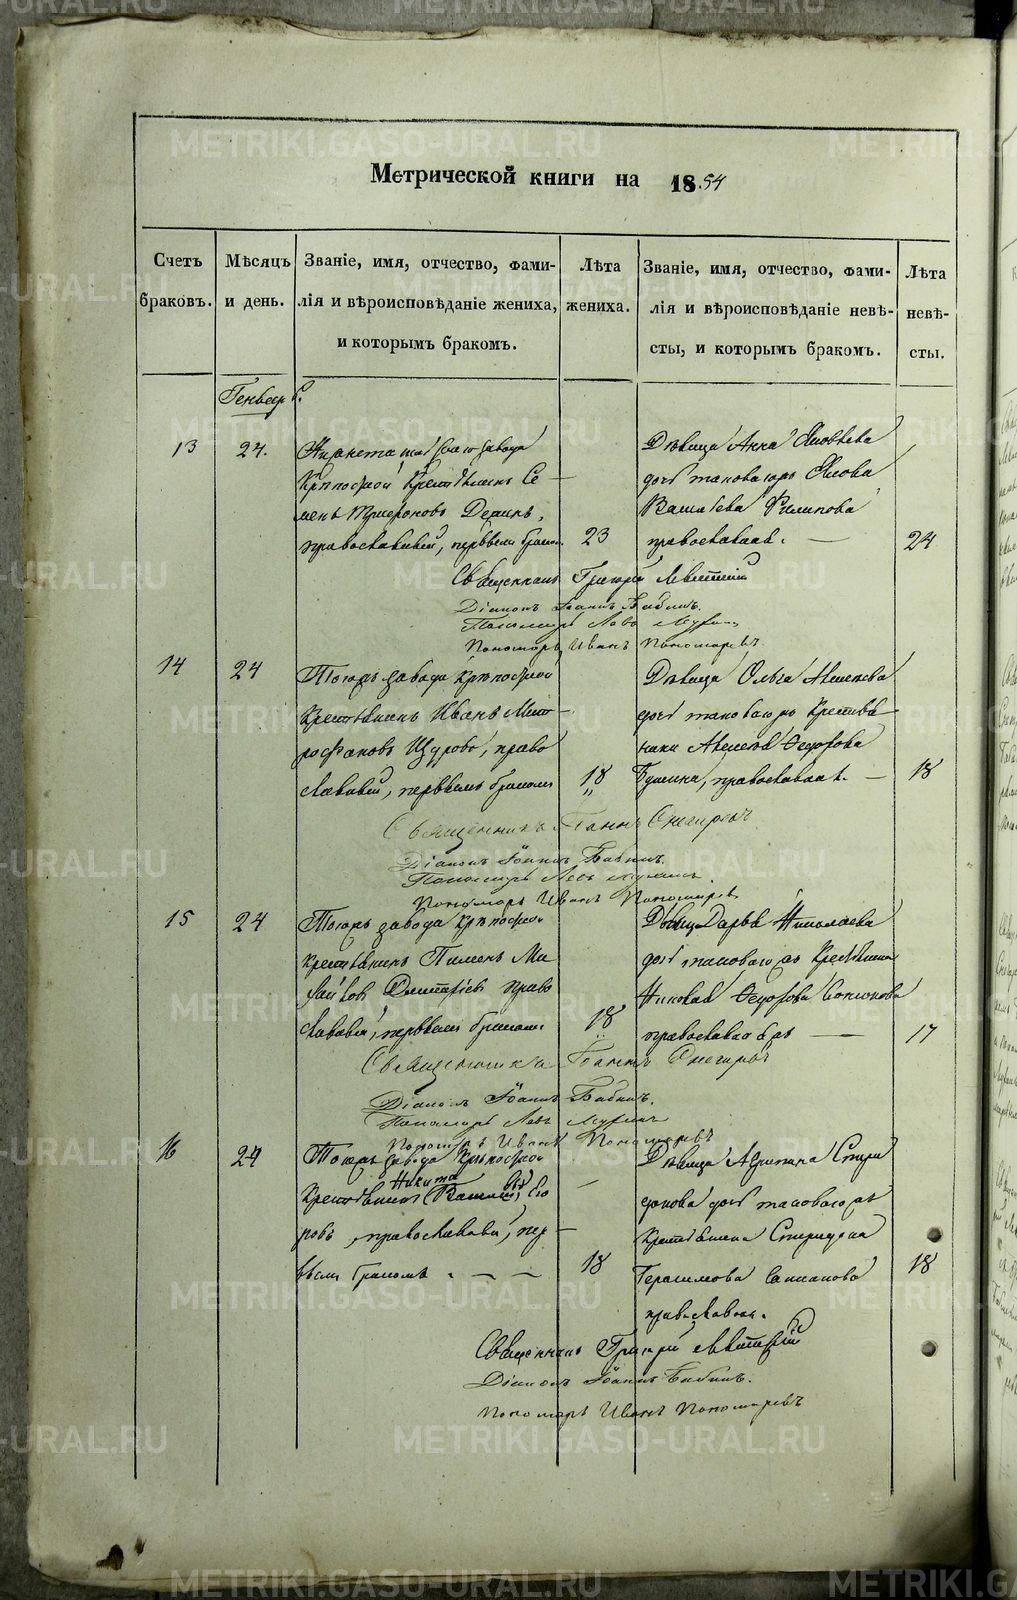 Метрической книги на 1854
Счетъ браковъ.
Мѣсяцъ и день.
Званіе, имя, отчество, фами-
лія и вѣроисповѣданіе жениха,
и которымъ бракомъ.
Лѣта жениха.
Званіе, имя, отчество, фами-
лія и вѣроисповѣданіе невѣ-
сты, и которымъ бракомъ.
Лѣта невѣ-
сты.
Генваря
13
24.
завода
крѣпостной крестьянинъ Се
менъ Деминъ,
православный, первымъ бракомъ
23
Дѣвица Анна Яковлева
дочь таковаго жъ Якова
Васильева Филипова
православная.
24
Священникъ Григорій
Діаконъ Іоаннъ Бабинъ.
Пономарь
Пономарь Иванъ Пономаревъ
14
24
Тогожъ завода крѣпостной
крестьянинъ Иванъ Мит
рофановъ Щуровъ, право
славный, первымъ бракомъ
18
Дѣвица Ольга Алексѣева
дочь таковаго жъ крестья
нина Алексѣя Ѳедорова
православная.
18
Священникъ Іоаннъ Снегиревъ
Діаконъ Іоаннъ Бабинъ.
Пономарь Иванъ Пономаревъ
15
24
Тогожъ завода крѣпостной
крестьянинъ Пименъ Ми
хайловъ Дмитріевъ право
славный, первымъ бракомъ
18
Дѣвица Дарья Николаева
дочь таковаго жъ крестьянина
Николая Ѳедорова
православная
17
Священника Іоаннъ Снегиревъ
Діаконъ Іоаннъ Бабинъ.
Пономарь Иванъ Пономаревъ
16
24
Тогожъ завода крѣпостной
Никита
крестьянинъ Его
ровъ, православный, пер
вымъ бракомъ.
18
Дѣвица Агрипина Спири
донова дочь таковаго жъ
крестьянина Спиридона
Герасимова
православная.
18
Священникъ Григорій
Діаконъ Іоаннъ Бабинъ.
Пономарь Иванъ Пономаревъ
METRIKI.GASO-URAL.RU